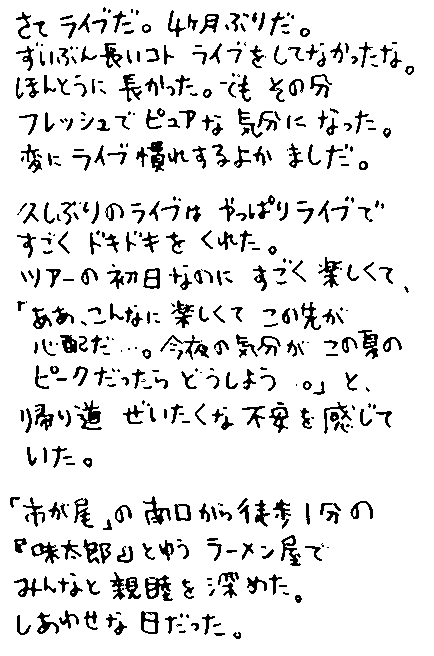 さて ライブだ。4ヶ月ぶりだ。
ずいぶん長いコト ライブをしてなかったな。
ほんとうに 長かった。でも その分
フレッシュで ピュアな 気分に なった。
変に ライブ慣れするよか ましだ。
久しぶりのライブは やっぱりライブで
すごく ドキドキを くれた。
ツアーの初日なのに すごく 楽しくて、
「ああ、こんなに 楽しくて この先が
心配だ…。今夜の気分が この夏の
ピークだったら どうしよう…。」と、
帰り道 ぜいたくな 不安を 感じて
いた。
「市が尾」の 南口から 徒歩1分の
『味太郎』とゆう ラーメン屋で
みんなと 親睦を 深めた。
しあわせな 日だった。